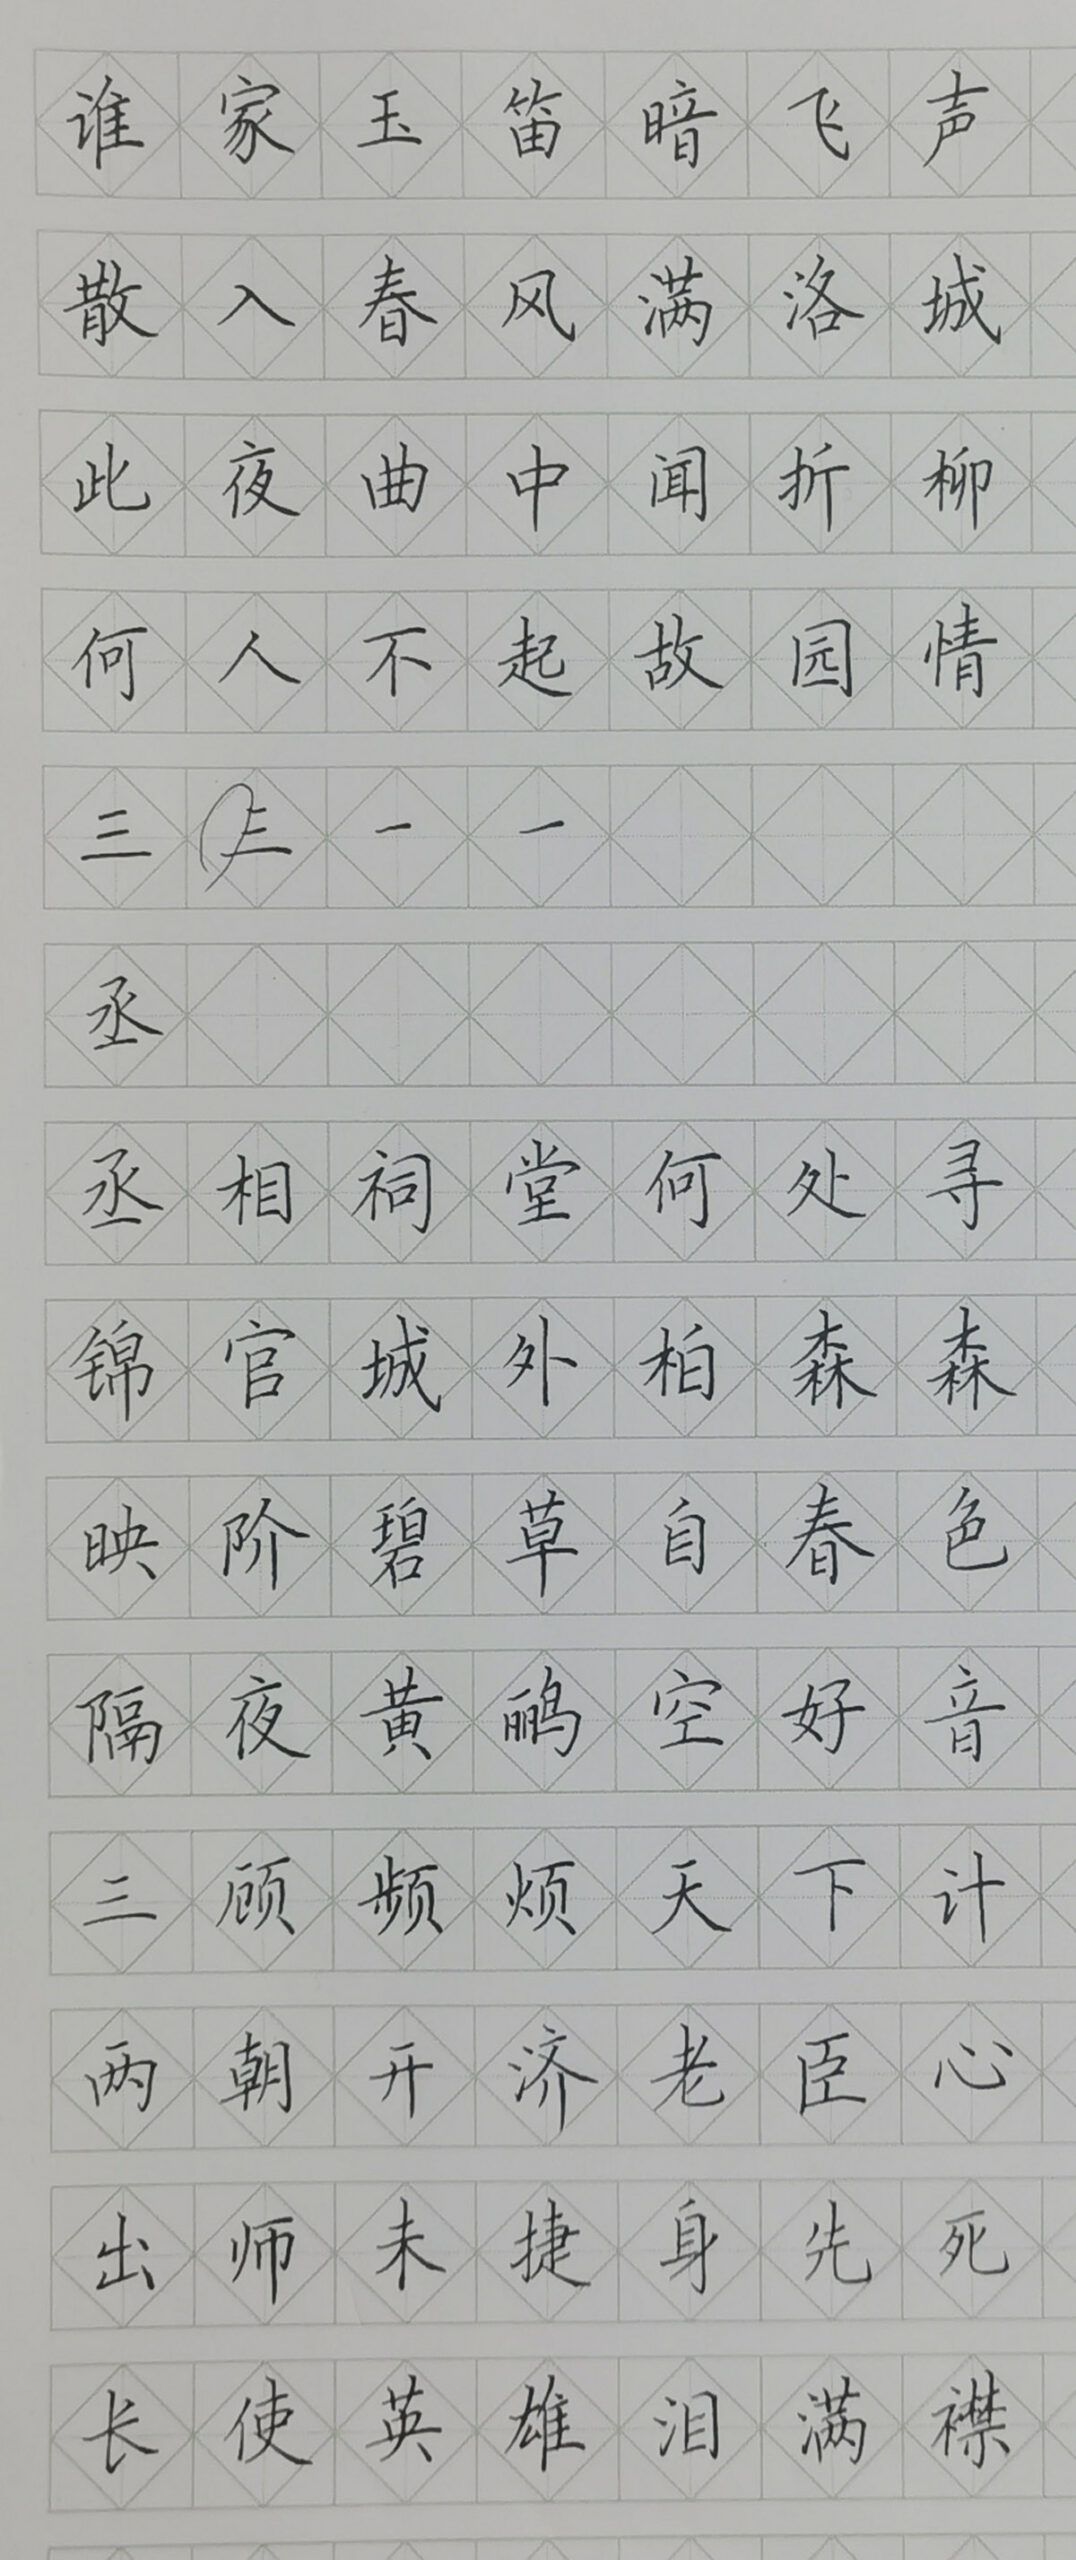 谁家玉笛暗飞声
散入春风满洛城
此夜曲中闻折柳
何人不起故园情
三三一一
丞
丞相祠堂何处寻
锦官城外柏森森
映阶碧草自春色
隔夜黄鹂空好音
三顾频烦天下计
两朝开济老臣心
出师未捷身先死
长使英雄泪满襟